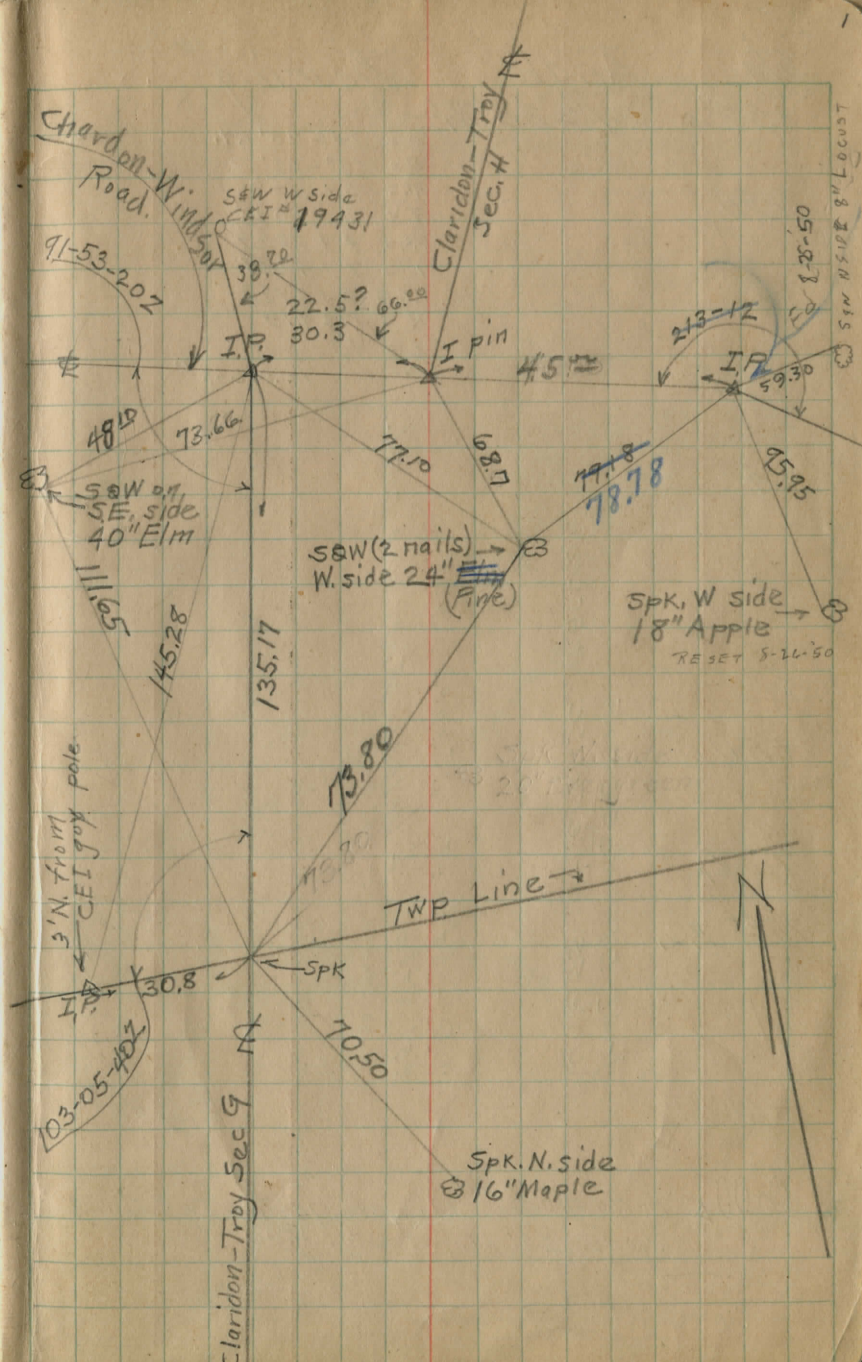 1
Chardon-Windsor
Road.
S&W W side
CEI # 19431
Claridon-Troy
Sec. H
S&N N SIDE 8" LOCUST
8-25-50
91-53-20
38.70
22.5?
30.3
66.00
I.P.
I. pin
45
213-12
I.P.
59.30
48.10
73.66
77.10
68.7
77.18
78.78
95.95
S&W on
S.E. side
40" Elm
S&W (2 nails)
W. side 24" Elm
(Pine)
Spk. W side
18" Apple
RESET 8-26-50
111.65
145.28
135.17
73.80
3' N. from
CEI guy pole
Twp Line
Spk
I.P.
30.8
103-05-40
70.50
Claridon-Troy Sec G
Spk. N. side
16" Maple
N